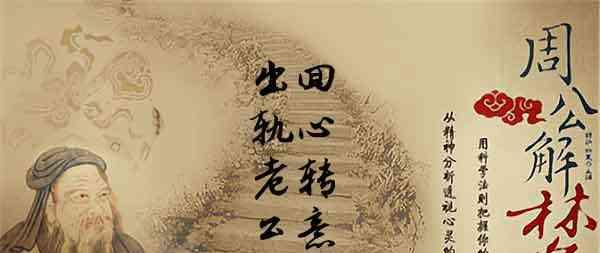 周公解
出轨老公
回心转意
用科学法则把握你的
从精神分析透视心灵的